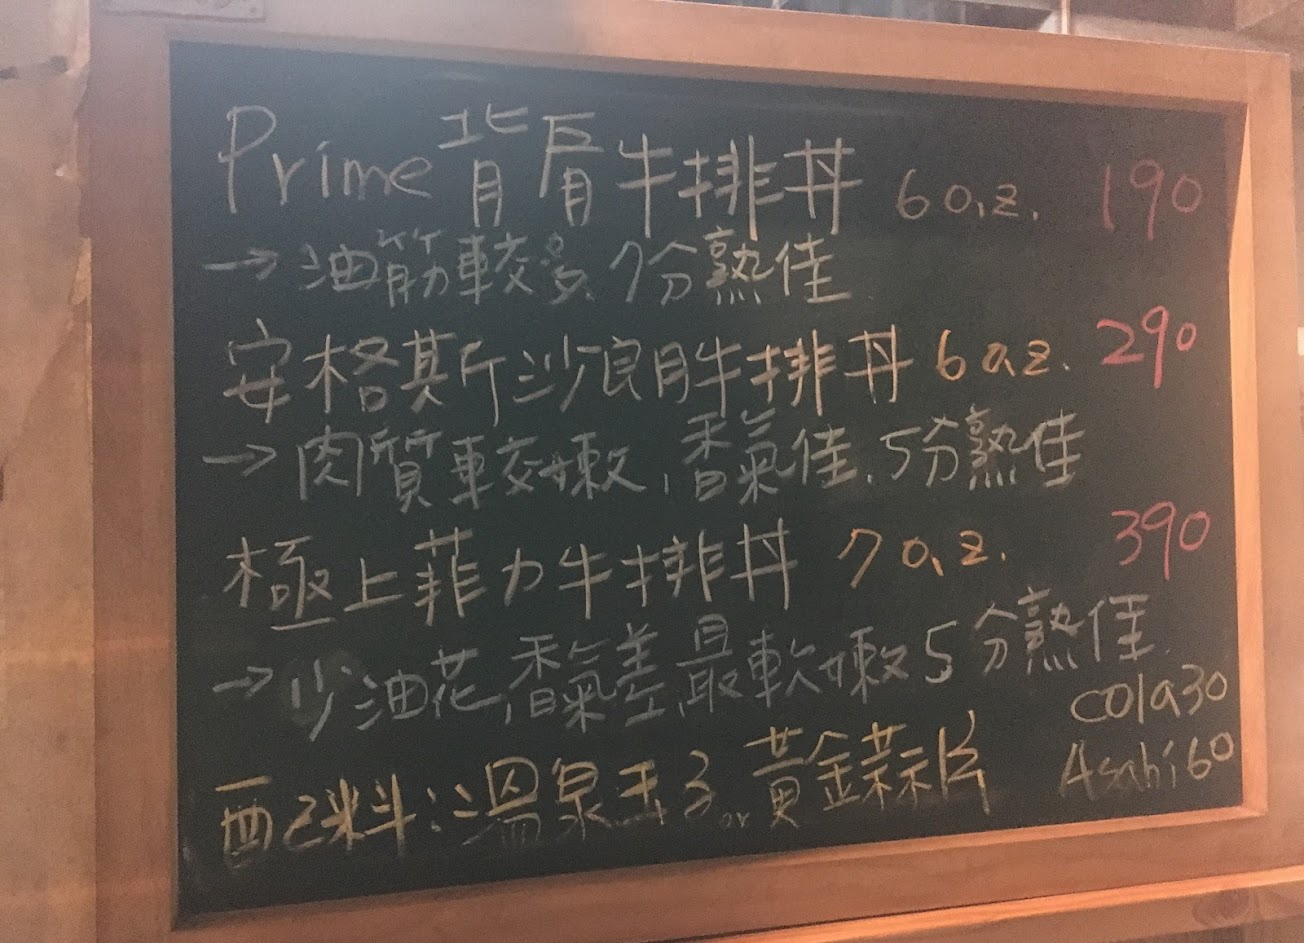 Prime背肩牛排丼 6o.z. 190
→油筋較多、7分熟佳
安格斯沙朗牛排丼 6o.z. 290
→肉質較嫩,香氣佳.5分熟佳
極上菲力牛排丼 7o.z. 390
→少油花,香氣差,最軟嫩5分熟佳.
cola30
配料:溫泉玉子or黃金蒜片
Asahi60